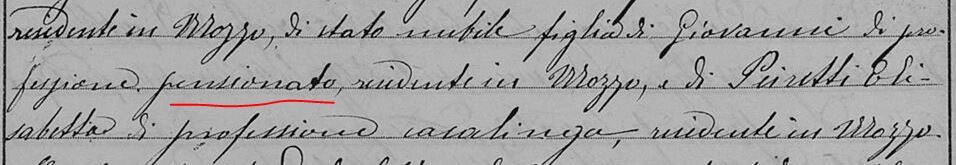 residente in Mozzo, di stato nubile figlia di Giovanni di pro-
fessione pensionato, residente in Mozzo, e di Peiretti Eli-
sabetta di professione casalinga, residente in Mozzo.